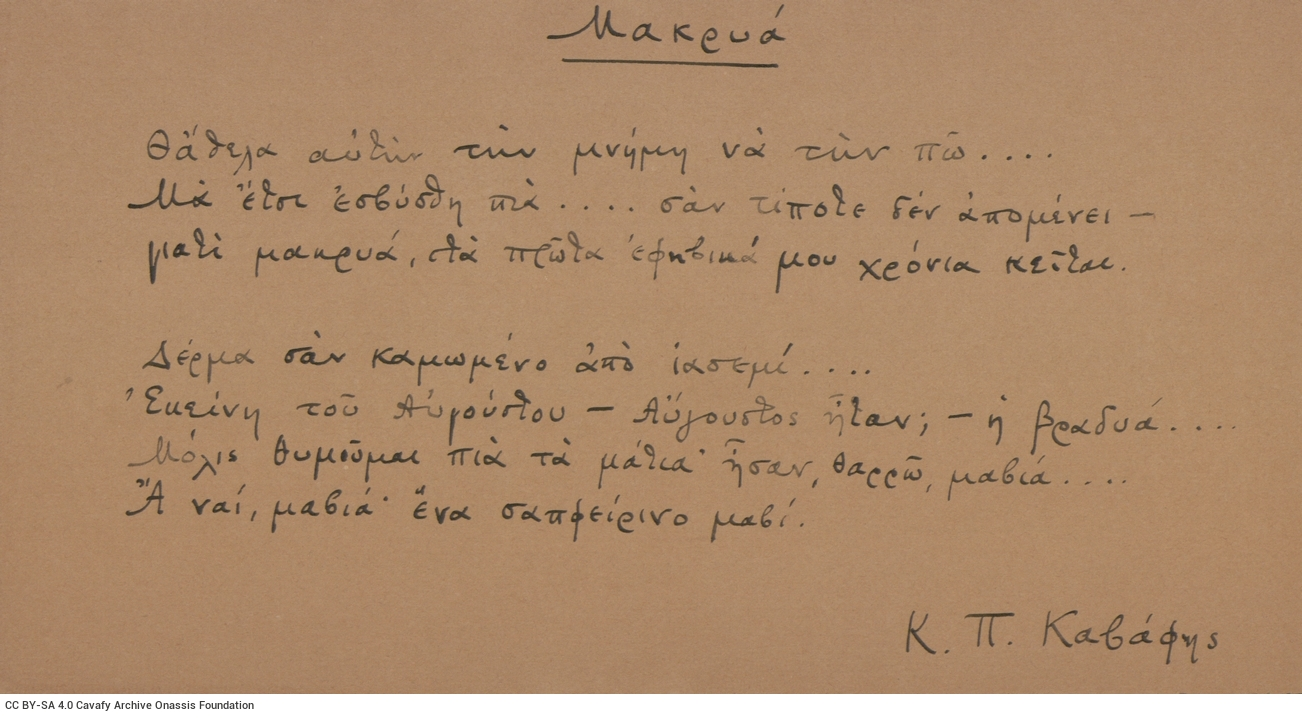 Μακρυά
Θἄθελα αὐτὴν τὴν μνήμη νὰ τὴν πῶ....
Μὰ ἔτσι ἐσβύσθη πιὰ.... σὰν τίποτε δέν ἀπομένει —
γιατὶ μακρυά, στὰ πρῶτα ἐφηβικά μου χρόνια κεῖται.
Δέρμα σὰν καμωμένο ἀπὸ ἰασεμί....
Ἐκείνη τοῦ Αὐγούστου — Αὔγουστος ἦταν; — ἡ βραδυά....
Μόλις θυμοῦμαι πιὰ τὰ μάτια· ἦσαν, θαρρῶ, μαβιά....
Ἂ ναί, μαβιά· ἕνα σαπφείρινο μαβί.
Κ. Π. Καβάφης
CC BY-SA 4.0 Cavafy Archive Onassis Foundation